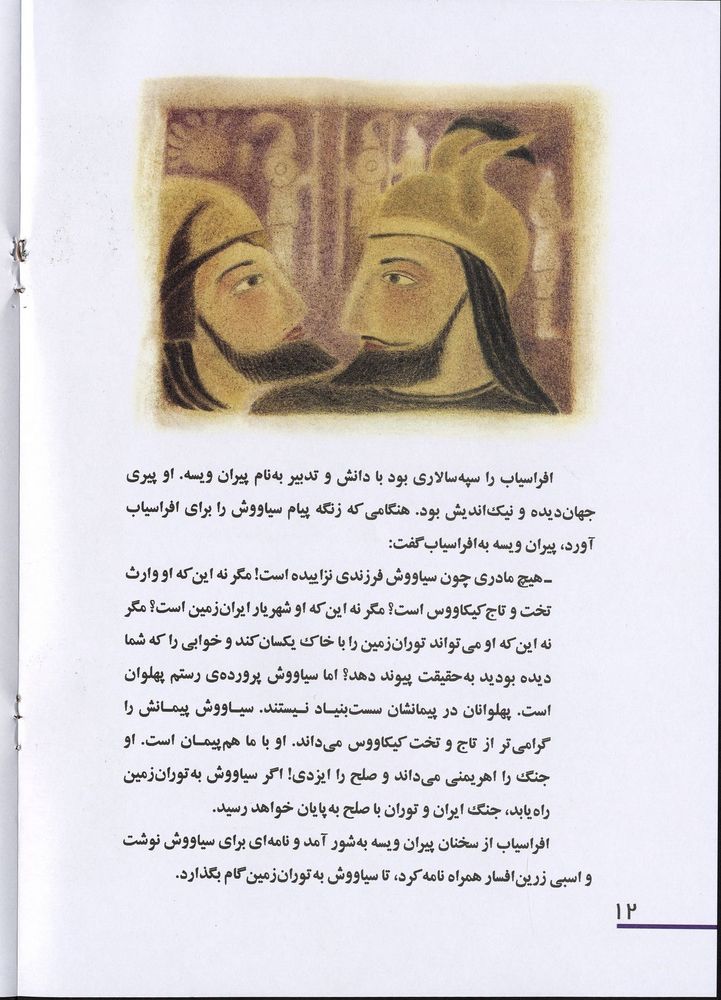 افراسیاب را سپه‌سالاری بود با دانش و تدبیر به‌نام پیران ویسه. او پیری
جهان‌دیده و نیک‌اندیش بود. هنگامی که زنگه پیام سیاووش را برای افراسیاب
آورد، پیران ویسه به‌افراسیاب گفت:
ـ هیچ مادری چون سیاووش فرزندی نزاییده است! مگر نه این‌که او وارث
تخت و تاج کیکاووس است؟ مگر نه این‌که او شهریار ایران‌زمین است؟ مگر
نه این‌که او می‌تواند توران‌زمین را با خاک یکسان کند و خوابی را که شما
دیده بودید به‌حقیقت پیوند دهد؟ اما سیاووش پرورده‌ی رستم پهلوان
است. پهلوانان در پیمانشان سست‌بنیاد نیستند. سیاووش پیمانش را
گرامی‌تر از تاج و تخت کیکاووس می‌داند. او با ما هم‌پیمان است. او
جنگ را اهریمنی می‌داند و صلح را ایزدی! اگر سیاووش به‌توران‌زمین
راه یابد، جنگ ایران و توران با صلح به‌پایان خواهد رسید.
افراسیاب از سخنان پیران ویسه به‌شور آمد و نامه‌ای برای سیاووش نوشت
و اسبی زرین‌افسار همراه نامه کرد، تا سیاووش به‌توران‌زمین گام بگذارد.
۱۲